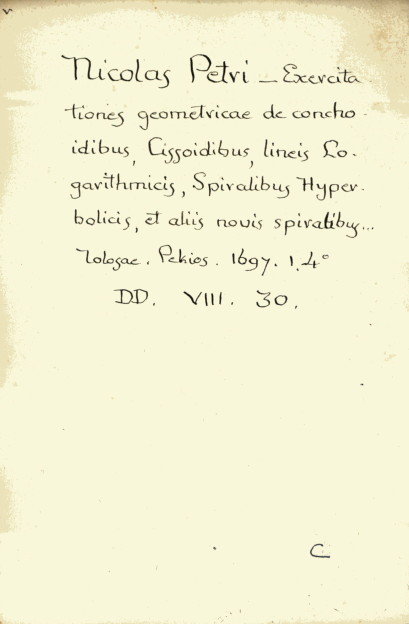 Nicolas Petri — Exercita
tiones geometricae de concho-
idibus, Cissoidibus, lineis Lo-
garithmicis, Spiralibus Hyper-
bolicis, et aliis novis spiralibus...
Tolosae. Pekios. 1697. 1. 4°
DD. VIII. 30.
C